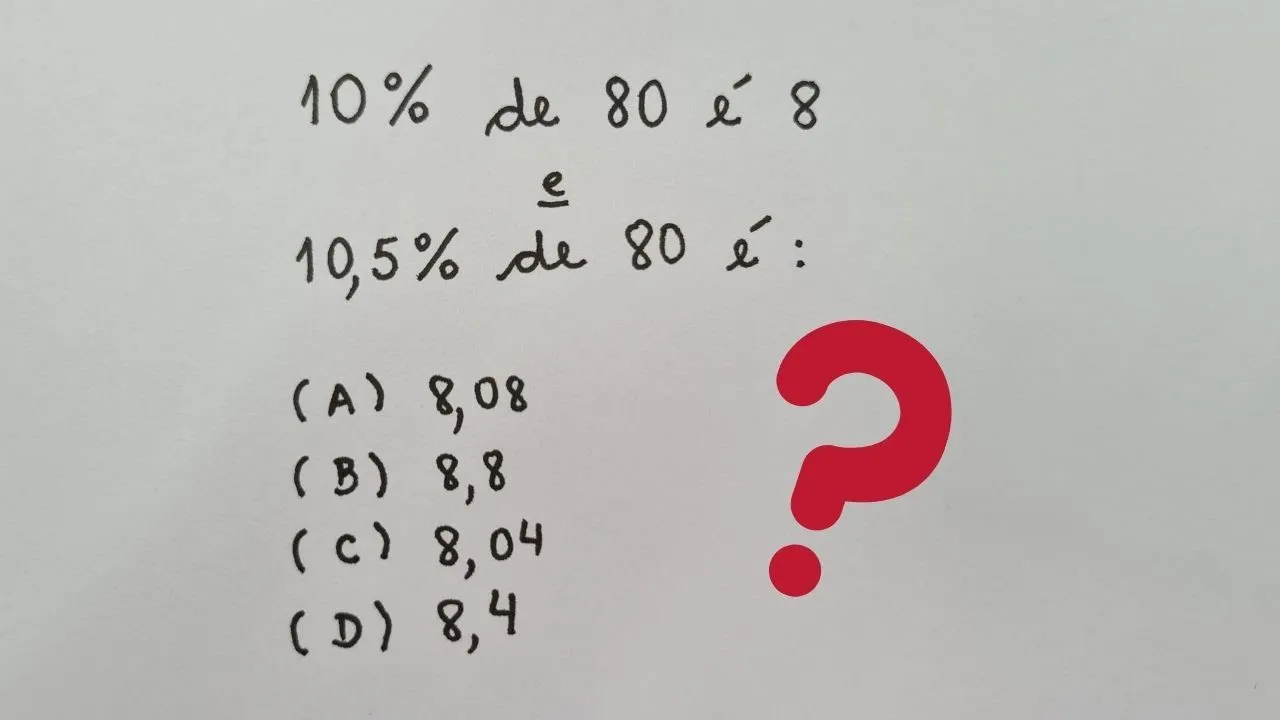 10% de 80 é 8
e
10,5% de 80 é:
(A) 8,08
(B) 8,8
(C) 8,04
(D) 8,4
?